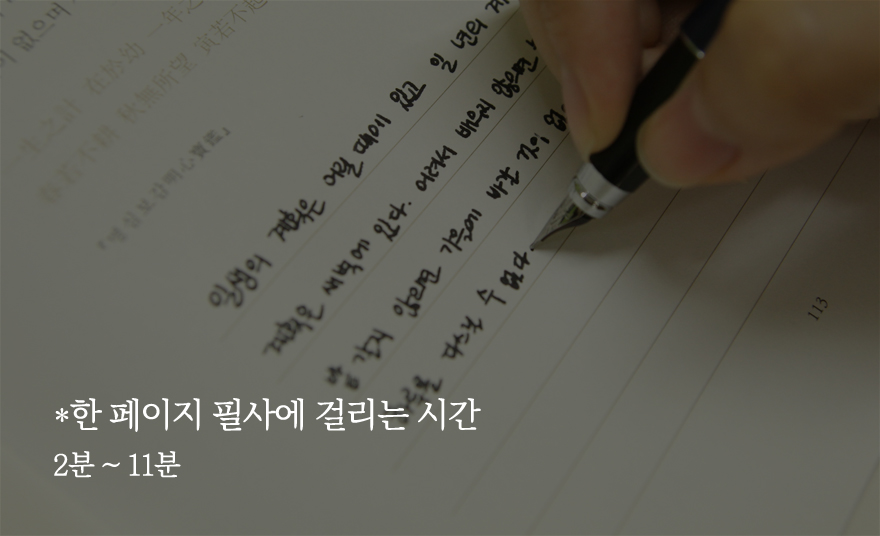 이 없으며
一生之計 在於幼 一年之
春若不耕 秋無所望 寅若不起
『명심보감明心寶鑑』
일생의 계획은 어릴 때에 있고 일 년의 계
계획은 새벽에 있다. 어려서 배우지 않으면
갈지 않으면 가을에 바랄 것이
다스릴 수 없다.
113
*한 페이지 필사에 걸리는 시간
2분 ~ 11분